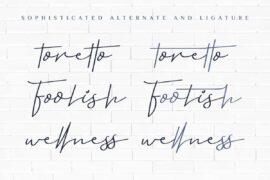 SOPHISTICATED ALTERNATE AND LIGATURE
toretto toretto
Foolish Foolish
wellness wellness